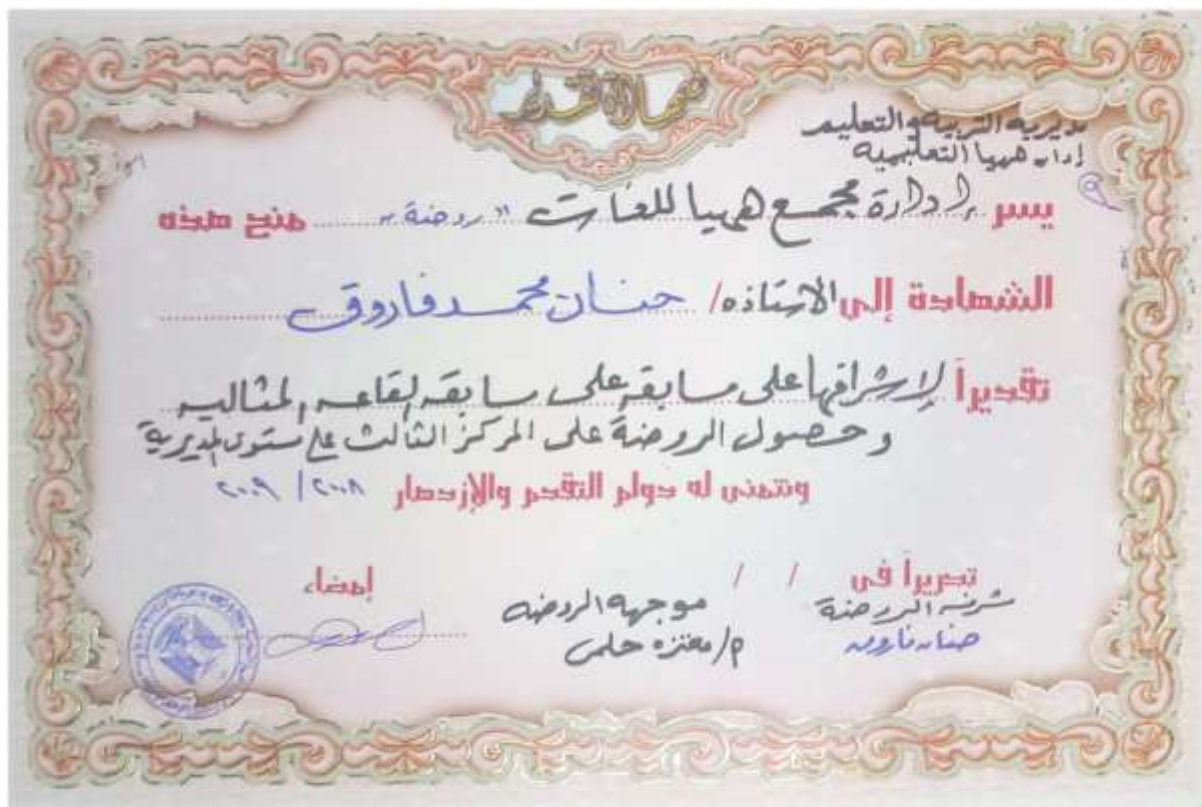 شهادة تقدير
مديرية التربية والتعليم
إدارة ههيا التعليمية
يسر إدارة مجمع ههيا للغات "روضة" منح هذه
الشهادة إلى الاستاذه/ حنان محمد فاروق
تقديراً لإشرافها على مسابقة على سابقه القاعه المثاليه
وحصول الروضة على المركز الثالث على مستوى المديرية
ونتمنى له دوام التقدم والإزدهار ٢٠٠٨ / ٢٠٠٩
تحريراً فى / / إمضاء
مشرفة الروضة موجهه الروضه
حنان فاروق م/معتزه حلمى